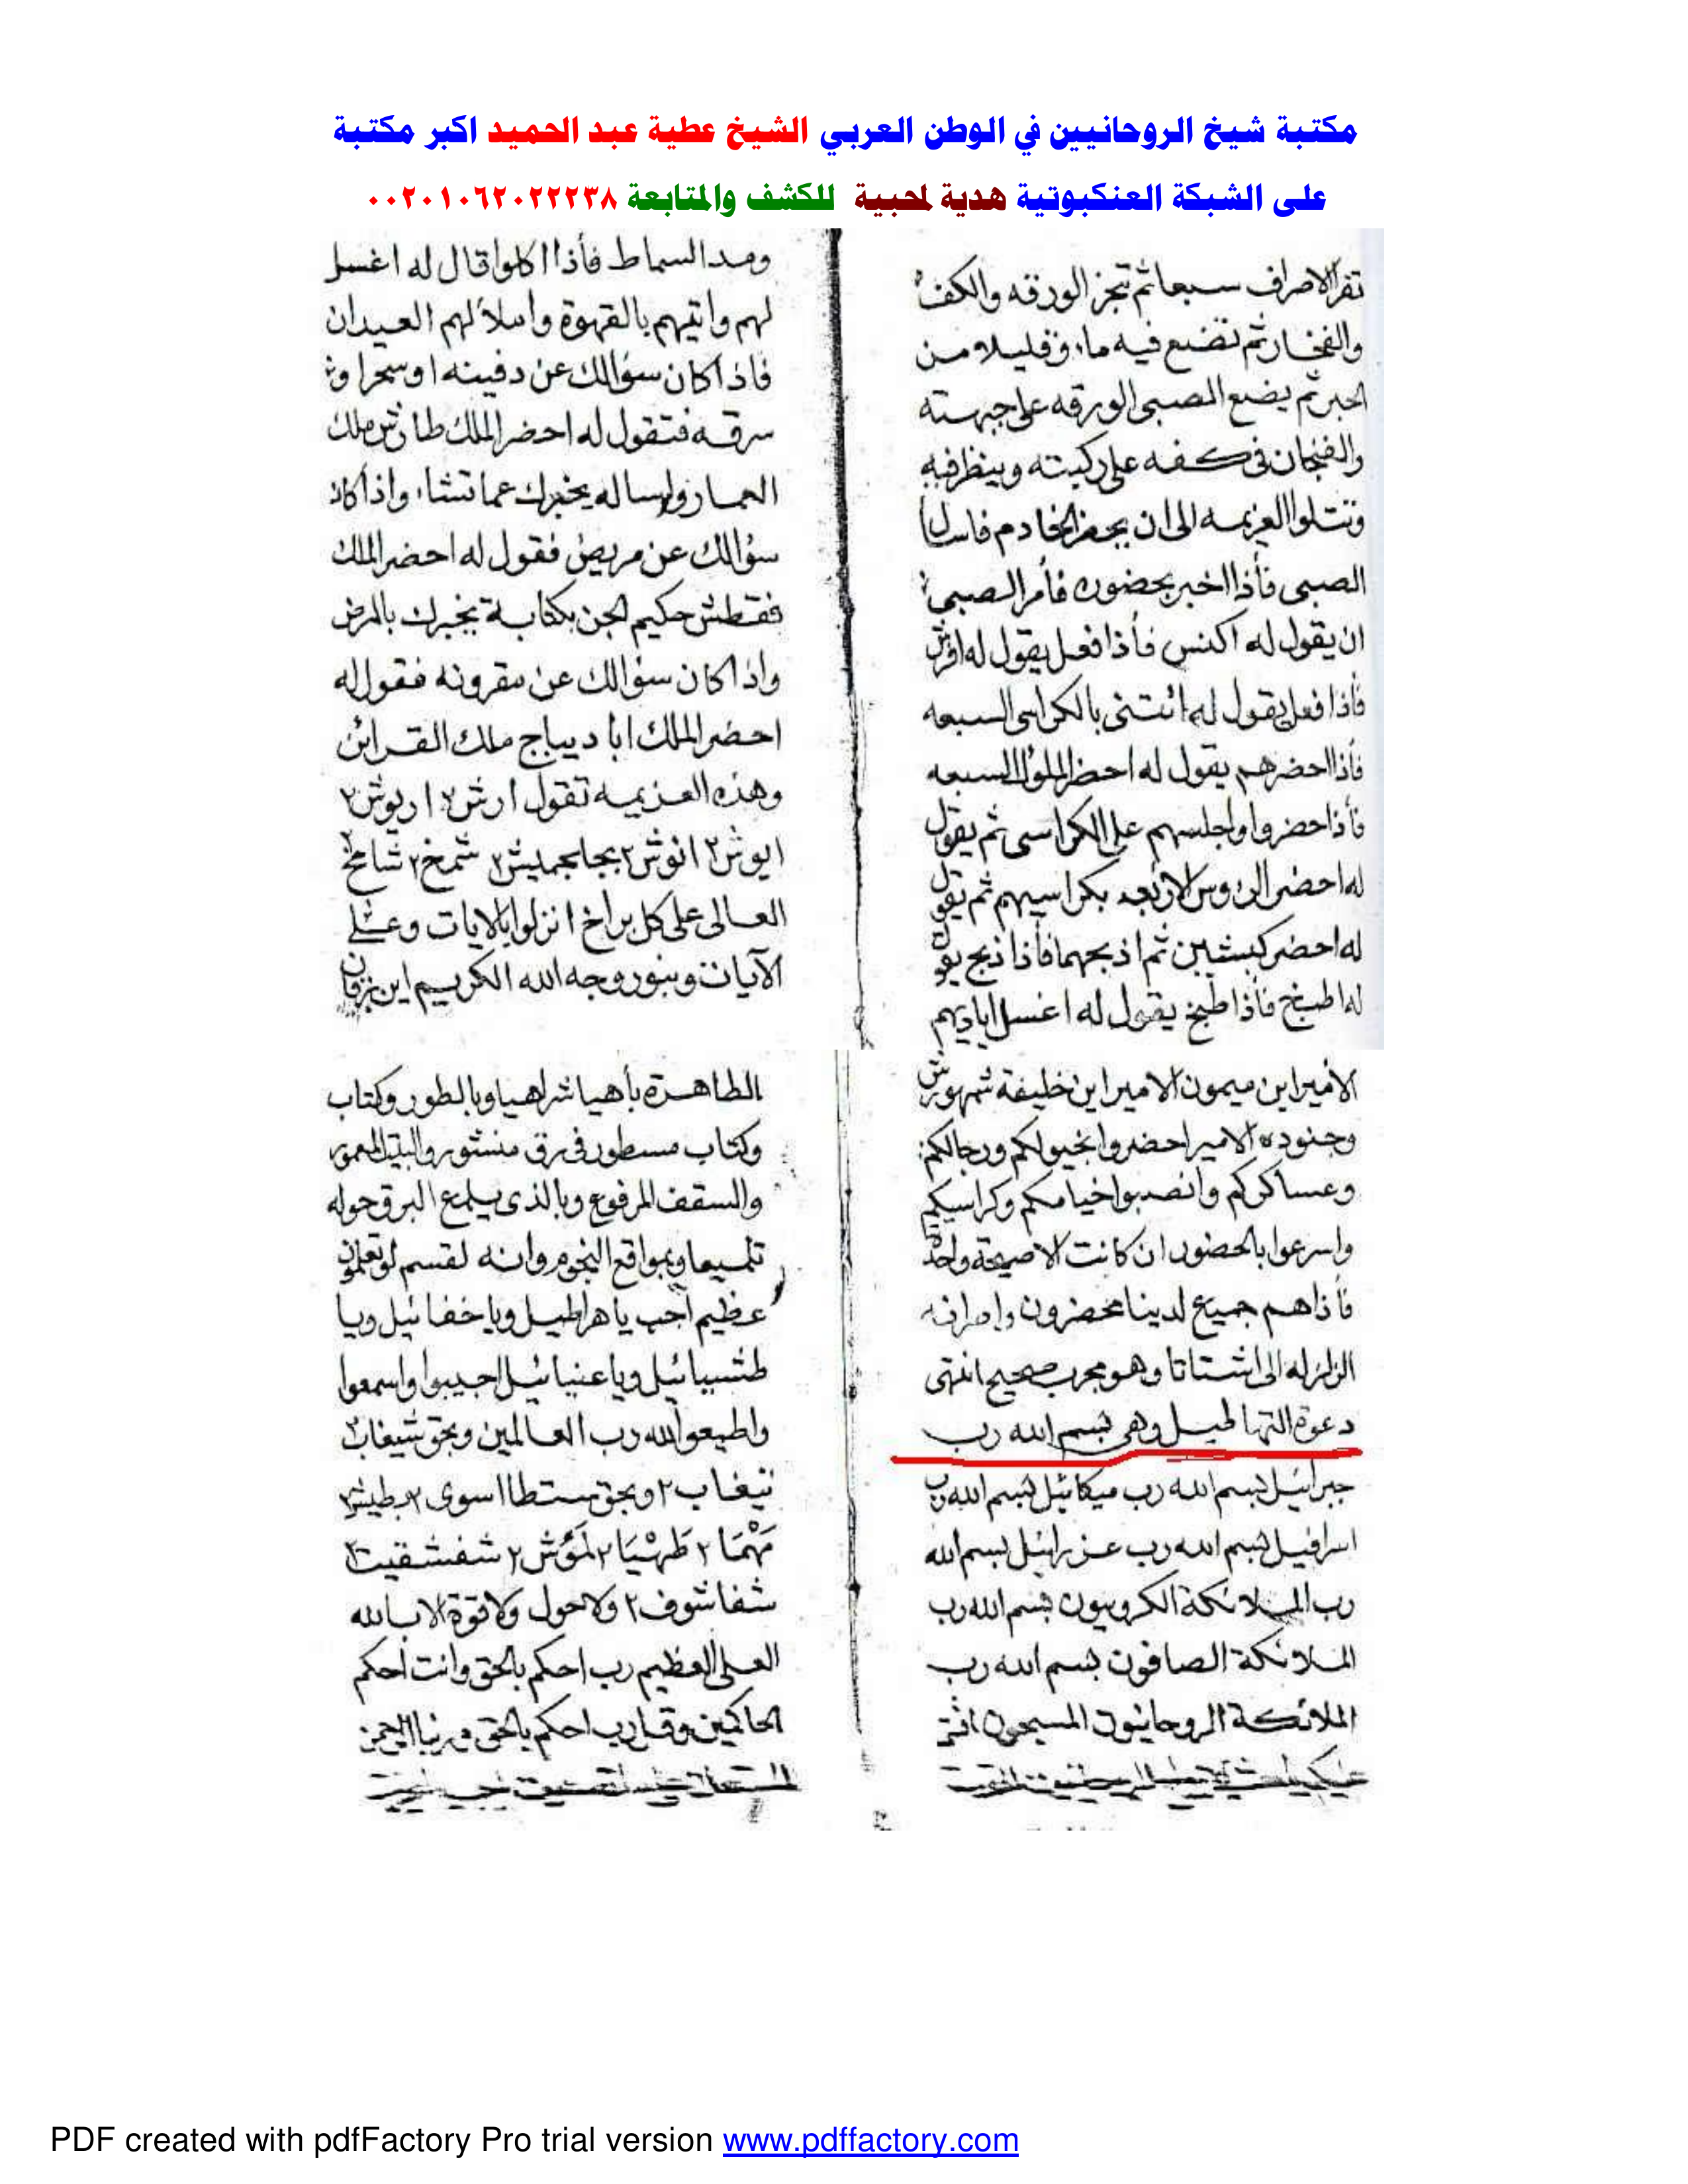 مكتبة شيخ الروحانيين في الوطن العربي الشيخ عطية عبد الحميد اكبر مكتبة
على الشبكة العنكبوتية هدية لمحبية للكشف والمتابعة ٠٠٢٠١٠٦٢٠٢٢٢٣٨
تقرا الاصراف سبعا ثم تبخر الورقه والكف
والفخار ثم تضع فيه ماء وقليلا من
الحبر ثم يضع الصبي الورقه على جبهته
والفنجان في كفه على ركبته وينظر فيه
وتتلوا العزيمه الى ان يحضر الخادم فاسال
الصبي فأذا اخبر بحضوره فأمر الصبي
ان يقول له اكنس فأذا فعل يقول له افرش
فأذا فعل يقول له ائتنى بالكراسى السبعه
فأذا احضرهم يقول له احظر الملوك السبعه
فأذا حضروا واجلسهم على الكراسى ثم يقول
له احضر الرؤوس الاربعه بكراسيهم ثم يقول
له احضر كبشين ثم اذبحهما فأذا ذبح يقول
له اطبخ فأذا طبخ يقول له اغسل اياديهم
ومد السماط فأذا اكلوا قال له اغسل
لهم وأتيهم بالقهوة واملأ لهم العيدان
فاذا كان سؤالك عن دفينه او سحرا و
سرقه فتقول له احضر الملك طارش ملك
العمار واساله يخبرك عما تشاء واذا كان
سؤالك عن مريض فقول له احضر الملك
فقطش حكيم الجن بكتابة يخبرك بالمرض
واذا كان سؤالك عن مقرونه فقول له
احضر الملك ابا ديباج ملك القرائن
وهذه العزيمه تقول ارش ٢ اريوش ٢
ايوش ٢ انوش ٢ بجابجميش ٢ شمخ ٢ شامخ
العالى على كل براخ انزلوا بالايات وعلى
الآيات وبنور وجه الله الكريم اين
الأمير اين ميمون الامير اين خليفة شمهورش
وجنوده الامير احضروا بخيولكم ورجالكم
وعساكركم وانصبوا خيامكم وكراسيكم
واسرعوا بالحضور ان كانت الا صيحة واحدة
فأذاهم جميع لدينا محضرون واصرافه
الزلزله الى اشتاتا وهو مجرب صحيح انتهى
دعوة التهاطيل وهى بسم الله رب
جبرائيل بسم الله رب ميكائيل بسم الله رب
اسرافيل بسم الله رب عزرائيل بسم الله
رب الملائكة الكروبيون بسم الله رب
الملائكة الصافون بسم الله رب
الملائكة الروحانيون المسبحون
الطاهرة بأهيا شراهيا وبالطور وكتاب
وكتاب مسطور فى رق منشور والبيت المعمور
والسقف المرفوع وبالذى يلمع البرق حوله
تلميعا وبمواقع النجوم وانه لقسم لو تعلمون
عظيم أجب يا هراطيل ويا خفائيل ويا
طشيائيل ويا عنيائيل اجيبوا واسمعوا
واطيعوا لله رب العالمين وبحق شيغاب ٢
نيغاب ٢ وبحق سسطا اسوى
مَهْمَا ٢ طَهْيَا ٢ لمَوَّش ٢ شفشقيت ٢
شفاشوف ٢ ولا حول ولا قوة الا بالله
العلى العظيم رب احكم بالحق وانت أحكم
الحاكمين وقل رب احكم بالحق وربنا الرحمن
PDF created with pdfFactory Pro trial version www.pdffactory.com